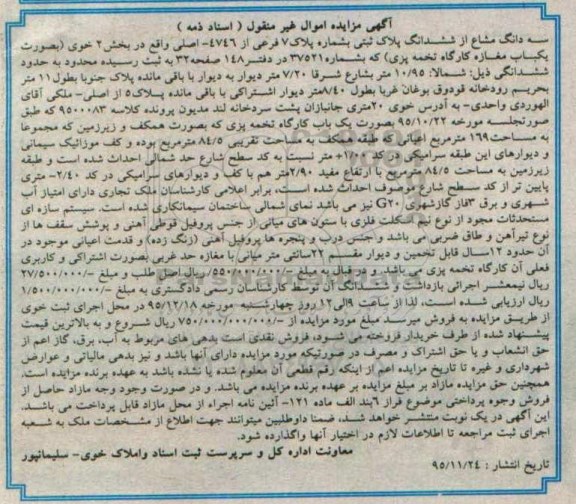 آگهی مزایده اموال غیر منقول ( اسناد ذمه )
سه دانگ مشاع از ششدانگ پلاک ثبتی بشماره پلاک۷ فرعی از ۴۷۴۶- اصلی واقع در بخش۲ خوی (بصورت
یکباب مغازه کارگاه تخمه پزی) که بشماره۳۷۵۲۱ در دفتر۱۴۸ صفحه۳۲ به ثبت رسیده محدود به حدود
ششدانگی ذیل: شمالا: ۱۰/۹۵ متر بشارع شرقا ۷/۲۰ متر دیوار به دیوار با باقی مانده پلاک جنوبا بطول۱۱ متر
بحریم رودخانه قودوق بوغان غربا بطول ۸/۴۰متر دیوار اشتراکی با باقی مانده پلاک۵ از اصلی- ملکی آقای
الهوردی واحدی- به آدرس خوی ۲۰متری جانبازان پشت سردخانه لند مدیون پرونده کلاسه ۹۵۰۰۰۸۳ که طبق
صورتجلسه مورخه ۹۵/۱۰/۲۲ بصورت یک باب کارگاه تخمه پزی که بصورت همکف و زیرزمین که مجموعا
به مساحت۱۶۹ مترمربع اعیانی که طبقه همکف به مساحت تقریبی ۸۴/۵ مترمربع بوده و کف موزائیک سیمانی
و دیوارهای این طبقه سرامیکی در کد ۱/۰۰+ متر نسبت به کد سطح شارع حد شمالی احداث شده است و طبقه
زیرزمین به مساحت ۸۴/۵ مترمربع با ارتفاع مفید ۲/۹۰متر هم با کف و دیوارهای سرامیکی در کد ۲/۴۰- متری
پایین تر از کد سطح شارع موصوف احداث شده است، برابر اعلامی کارشناسان ملک تجاری دارای امتیاز آب
شهری و برق ۳فاز گازشهری (G۲۰) نیز می باشد نمای شمالی ساختمان سیمانکاری شده است. سیستم سازه ای
مستحدثات مجود از نوع نیم اسکلت فلزی با ستون های میانی از جنس پروفیل قوطی آهنی و پوشش سقف ها از
نوع تیرآهن و طاق ضربی می باشد واجنس درب و پنجره ها پروفیل آهنی (زنگ زده) و قدمت اعیانی موجود در
آن حدود ۱۲سال قابل تخمین و دیوار مقسم ۲۲سانتی متر میانی با مغازه حد غربی بصورت اشتراکی و کاربری
فعلی آن کارگاه تخمه پزی می باشد. و در قبال به مبلغ -/۵۵۰/۰۰۰/۰۰۰ ریال اصل طلب و مبلغ -/۲۷/۵۰۰/۰۰۰
ریال نیمعشر اجرائی بازداشت و ششدانگ آن توسط کارشناسان رسمی دادگستری به مبلغ -/۱/۵۰۰/۰۰۰/۰۰۰
ریال ارزیابی شده است، لذا از ساعت ۹الی۱۲ روز چهارشنبه مورخه ۹۵/۱۲/۱۸ در محل اجرای ثبت خوی
از طریق مزایده به فروش میرسد مبلغ مورد مزایده از -/۷۵۰/۰۰۰/۰۰۰ ریال شروع و به بالاترین قیمت
پیشنهاد شده از طرف خریدار فروخته می شود، فروش نقدی است بدهی های مربوط به آب، برق، گاز اعم از
حق انشعاب و یا حق اشتراک و مصرف در صورتیکه مورد مزایده دارای آنها باشد و نیز بدهی مالیاتی و عوارض
شهرداری و غیره تا تاریخ مزایده اعم از اینکه رقم قطعی آن معلوم شده یا نشده باشد به عهده برنده مزایده است.
همچنین حق مزایده مازاد بر مبلغ مزایده بر عهده برنده مزایده می باشد. و در صورت وجود وجه مازاد حاصل از
فروش وجوه پرداختی موضوع فراز ۶بند الف ماده ۱۲۱- آئین نامه اجراء از محل مازاد قابل پرداخت می باشد.
این آگهی در یک نوبت منتشر خواهد شد، ضمنا داوطلبین میتوانند جهت اطلاع از مشخصات ملک به شعبه
اجرای ثبت مراجعه تا اطلاعات لازم در اختیار آنها راگذارده شود.
معاونت اداره کل و سرپرست ثبت اسناد واملاک خوی- سلیمانپور
تاریخ انتشار : ۹۵/۱۱/۲۴